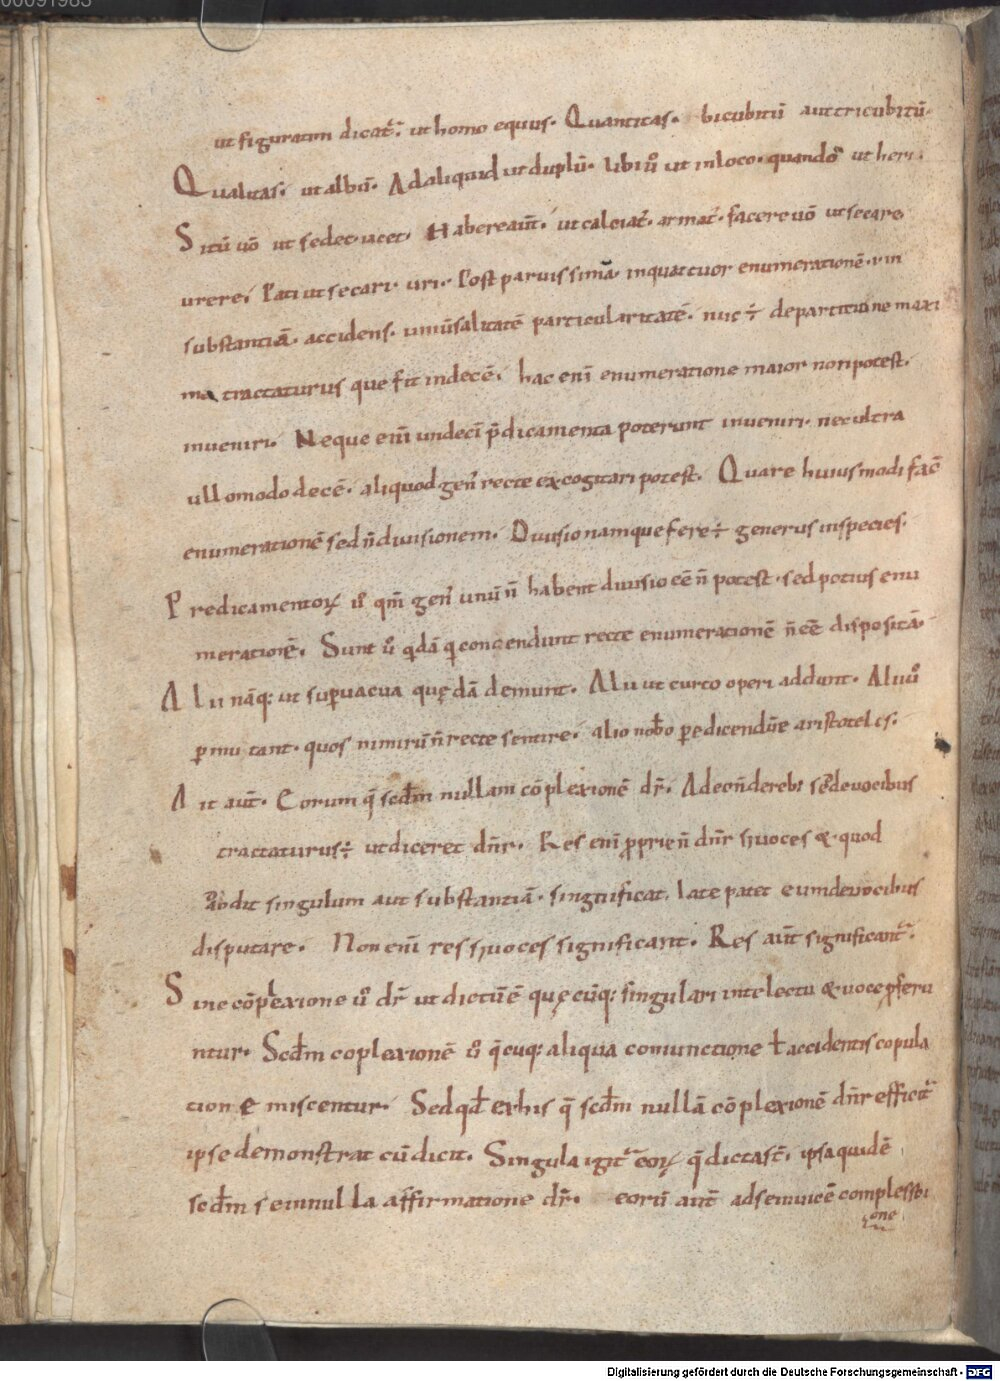 00091983
ut figuratim dicat᷑. ut homo equus. Quantitas. bicubitū aut tricubitū.
Qualitas. ut albū. Ad aliquid ut duplū. Ubi u̅o ut in loco. quando ut heri.
Situ̅ u̅o ut sedet. iacet. Habere aut̅. ut calciat᷑. armat᷑. facere u̅o ut secare
urere. Pati ut secari. uri. Post paruissimā inquattuor enumerationē. in
substantiā. accidens. uniu̅salitatē particularitatē. nūc ÷ departitione maxi
ma tractaturus que fit indecē. hac eni̅ enumeratione maior non potest.
inueniri. Neque eni̅ undeci̅ p̄dicamenta poterunt inueniri. nec ultra
ullomodo decē. aliquod gen᷒ recte excogitari potest. Quare huiusmodi facē
enumerationē sed n̄ diuisionem. Diuisio namque fere ÷ generus inspecies.
Predicamentoꝝ u̅o qm̅ gen᷒ unū n̄ habent diuisio ēē n̄ potest. sed potius enu
merationē. Sunt u̅o qdā qi contendunt recte enumerationē n̄ ēē dispositā.
Alii nāq; ut supuacua quędā demunt. Alii ut curto operi addunt. Alii u̅o
ꝑmutant. quos nimirū n̄ recte sentire. alio nob̄o ꝑedicendūe aristoteles.
Ait aut̅. Eorum q̄ scd̅m nullam cōplexionē dr̄. Adecn̄derebꝰ sed devocibus
tractaturus ÷ ut diceret dn̄r. Res eni̅ ꝓprie n̄ dn̄r s; uoces & quod
addit singulum aut substantiā. singnificat. late patet eumdeuocibus
disputare. Non eni̅ res s; uoces significant. Res aut̅ significant᷑.
Sine cōplexione u̅o dr̄ ut dictū ē quęcūq; singulari intelectu & uoce ꝓferu
ntur. Scd̅m coplexionē u̅o q̄cuq; aliqua coniunctione ł accidentis copula
tione miscentur. Sed qd̅ exhis q̄ scd̅m nullā cōplexionē dn̄r efficit᷑
ipse demonstrat cū dicit. Singula igit᷑ eoꝝ q̄ dicta st̅. ipsa quidē
scd̅m se in nulla affirmatione dr̄. eorū aut̅ adseinuicē complessi
one
Digitalisierung gefördert durch die Deutsche Forschungsgemeinschaft - DFG